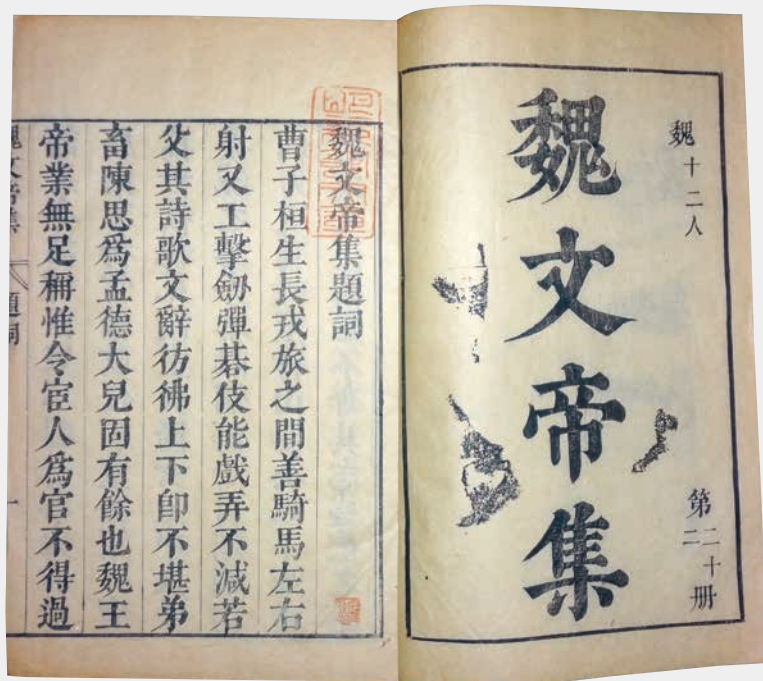 魏十二人
第二十二册
魏文帝集
魏文帝集題詞
曹子桓生長戎旅之間善騎馬左右
射又工擊劒彈碁伎能戲弄不減若
父其詩歌文辭彷彿上下卽不堪弟
畜陳思爲孟德大兒固有餘也魏王
帝業無足稱惟令宦人爲官不得過
魏文帝集
題詞
一